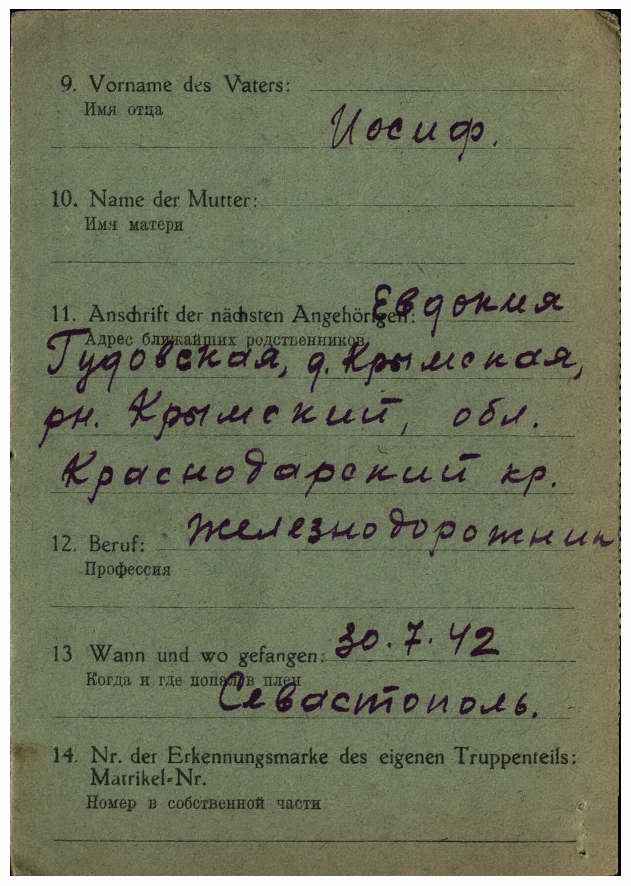 9. Vorname des Vaters:
Имя отца
Иосиф.
10. Name der Mutter:
Имя матери
11. Anschrift der nächsten Angehörigen: Евдокия
Адрес ближайших родственников
Гудовская, д. Крымская,
рн. Крымский, обл.
Краснодарский кр.
12. Beruf: железнодорожник
Профессия
13 Wann und wo gefangen: 30.7.42
Когда и где попал в плен
Севастополь.
14. Nr. der Erkennungsmarke des eigenen Truppenteils:
Matrikel-Nr.
Номер в собственной части